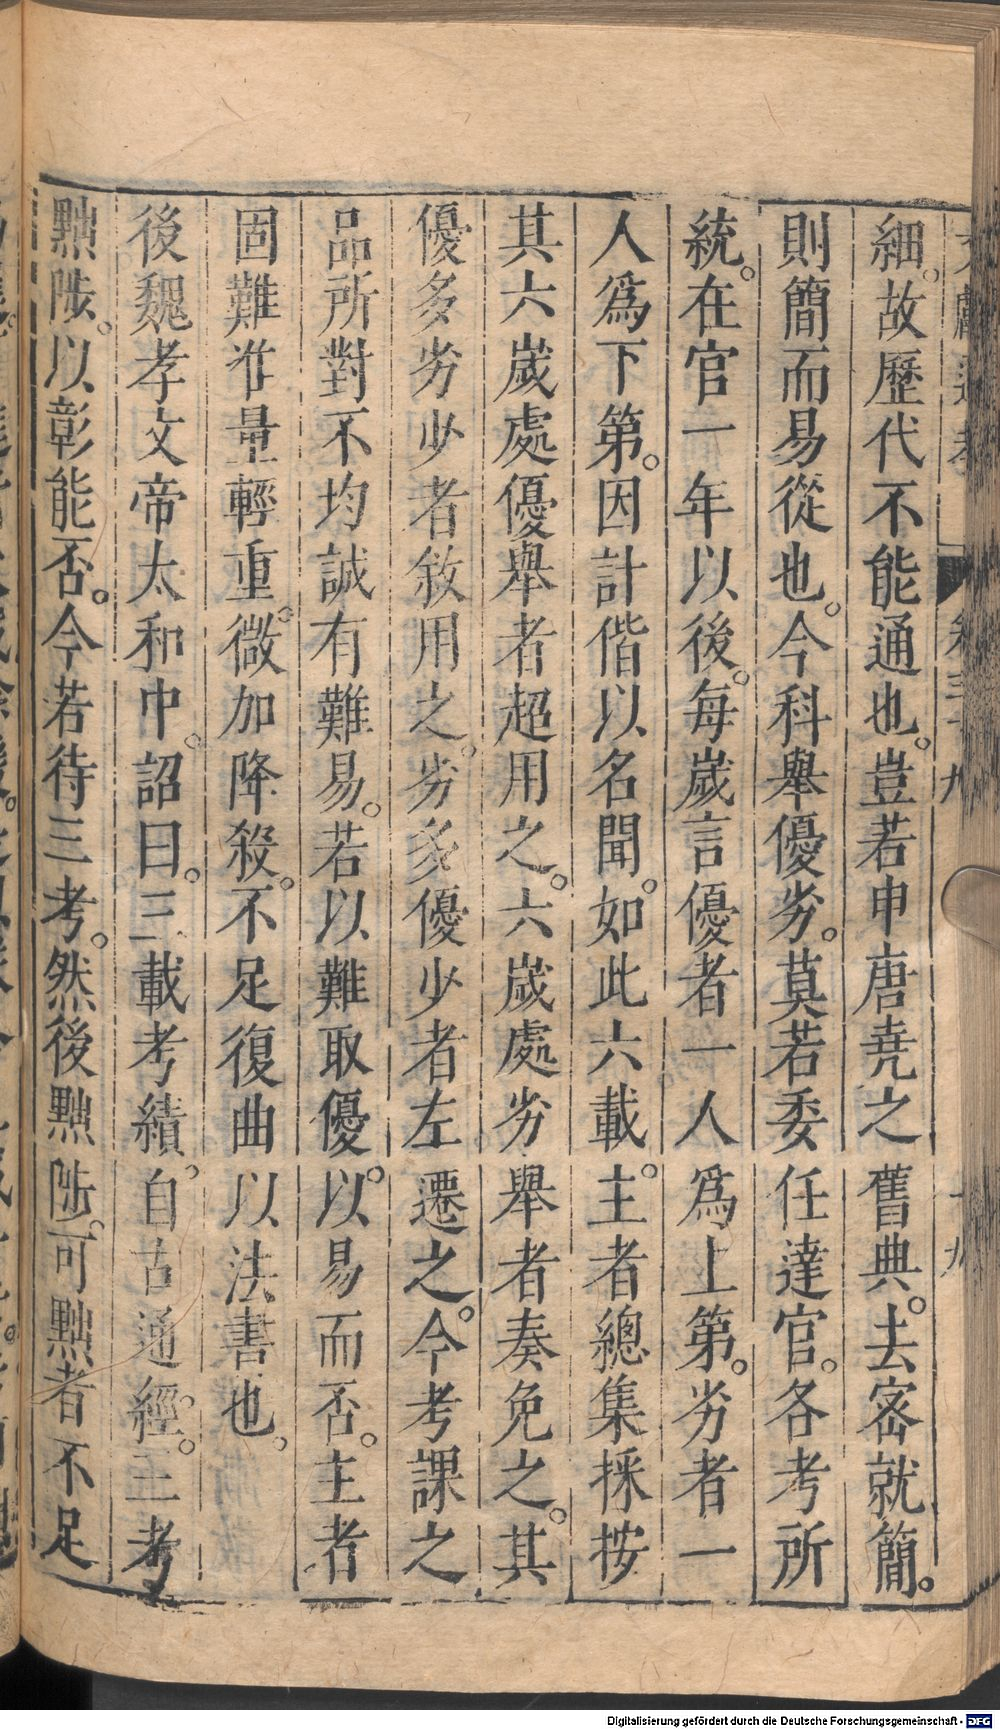 文獻通考 卷三十九 十九
細。故歷代不能通也。豈若申唐堯之舊典。去密就簡。
則簡而易從也。今科舉優劣。莫若委任達官。各考所
統。在官一年以後。每歲言優者一人爲上第。劣者一
人爲下第。因計偕以名聞。如此六載。主者總集採按
其六歲處優舉者超用之。六歲處劣舉者奏免之。其
優多劣少者敘用之。劣多優少者左遷之。今考課之
品所對不均。誠有難易。若以難取優。以易而否。主者
固難准量輕重。微加降殺。不足復曲以法書也。
後魏孝文帝太和中。詔曰。三載考績。自古通經。三考
黜陟。以彰能否。今若待三考。然後黜陟。可黜者不足
Digitalisierung gefördert durch die Deutsche Forschungsgemeinschaft - DFG